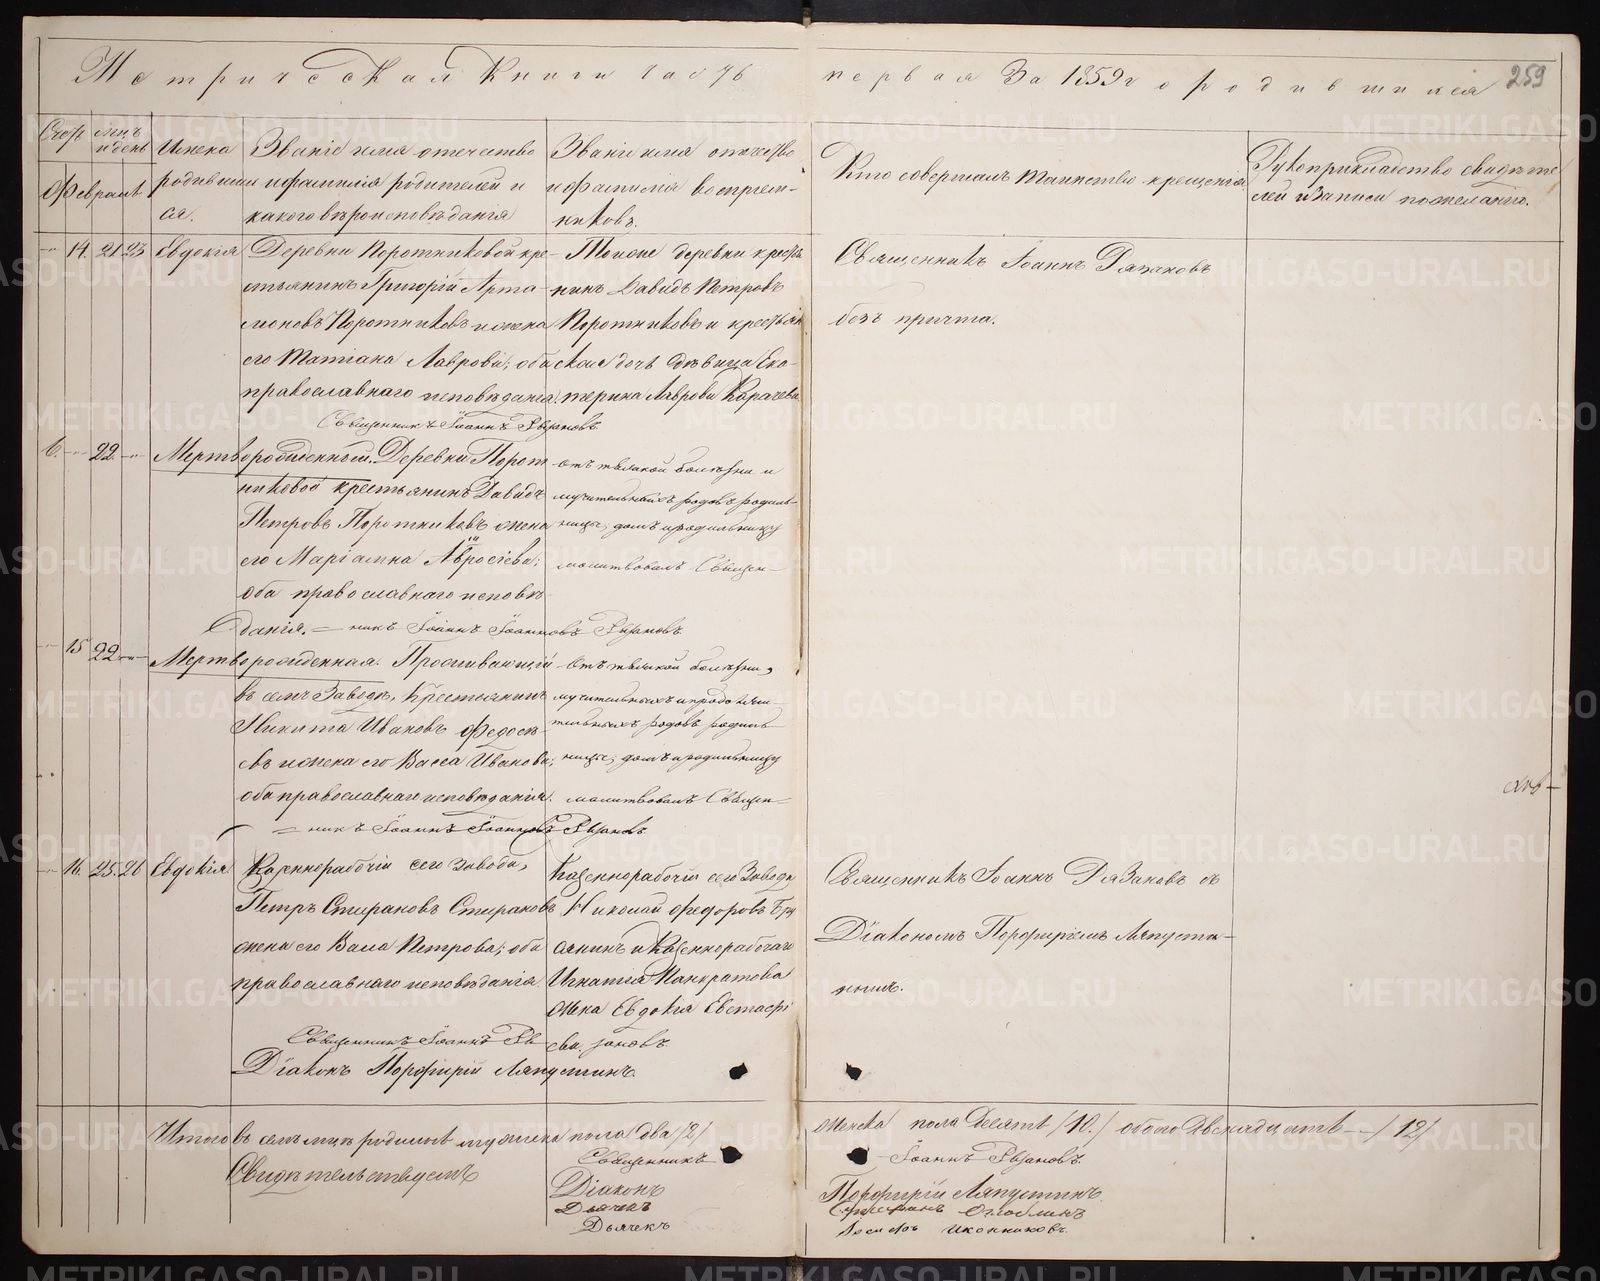 Метрической книги часть первая за 1859 г о родившихся
259
Счет
мць и день
Имена родивших ся.
Званіе имя отечество и фамилія родителей и какого вѣроисповѣданія
Званіе имя отечество и фамилія воспріем- никовъ.
Кто совершалъ таинство крещенія
Рукоприкладство свидѣте лей и записи по желанію.
Февраль
14. 21 23 Евдокія
Деревни Поротниковой кре-
стьянинъ Григорій Арта-
моновъ Поротниковъ и жена
его Татіана Лаврова; оба
православнаго исповѣданія.
Тойже деревни кресть
нинъ Давидъ Петровъ
Поротниковъ и крестьян
ская дочь дѣвица Ека-
терина Лаврова Карачева
Священникъ Іоаннъ Рязановъ
безъ причта.
Священникъ Іоаннъ Рязановъ.
6. 22
Мертворожденный. Деревни Порот
никовой крестьянинъ Давидъ
Петровъ Поротниковъ жена
его Маріамна
оба православнаго исповѣ
данія.
отъ тяжкой болѣзни и
мучительныхъ родовъ родиль-
ницы; домъ и родильницу
молитвовалъ Священ-
никъ Іоаннъ Іоанновъ Рязановъ
15 22
Мертворожденная. Проживающій
въ семъ Заводѣ, Крестьянинъ
Никита Ивановъ Федосѣ-
въ и жена его Васса Иванова;
оба православнаго исповѣданія.
отъ тяжкой болѣзни,
мучительныхъ и продолжи-
тельныхъ родовъ родиль-
ницы; домъ и родильницу
молитвовалъ Священ-
никъ Іоаннъ Іоанновъ Рязановъ
16. 25. 26 Евдокія
Казеннорабочій сего завода,
Петръ Спиранов Спиранов
жена его Васса Петрова; оба
православнаго исповѣданія
Казеннорабочій сего Завода
Николай Федоровъ Бру
сянинъ и Казеннорабочаго
Игнатія Панкратова
жена Евдокія Евстафі
ева.
Священникъ Іоаннъ Рязановъ съ
Діакономъ Порфиріемъ Ляпусти-
нымъ.
Священникъ Іоаннъ Рязановъ.
Діаконъ Порфирій Ляпустинъ.
Итого въ семъ мцѣ родилось мужеска пола два /2/
женска пола десять /10./ обоего двенадцать /12/
Свидѣтельствуемъ
Священникъ Іоаннъ Рязановъ.
Діаконъ Порфирій Ляпустинъ.
Дьячекъ
Дьячекъ Иконниковъ.
METRIKI.GASO-URAL.RU